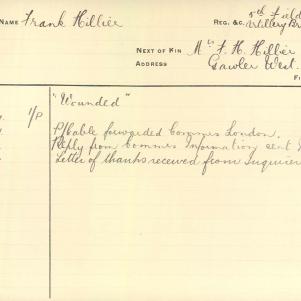 NAME Frank Hillier REG. &C. 5th Field
Artillery Br
NEXT OF KIN Mrs F. H. Hillier
ADDRESS Gawler West.
"Wounded"
1/P P/Cable forwarded Commes London.
Reply from Commes Information sent
Letter of thanks received from Inquirer